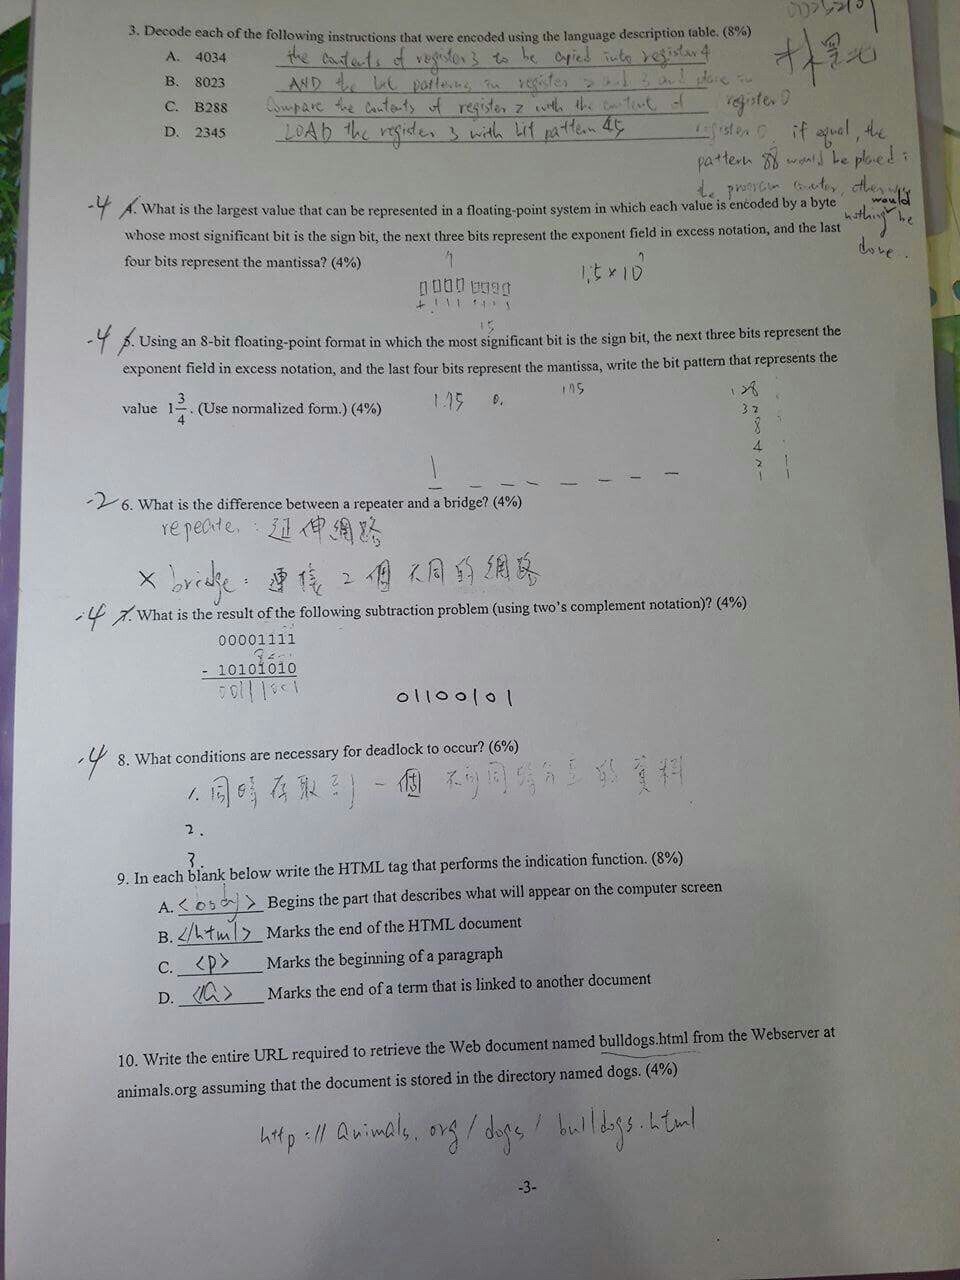 3. Decode each of the following instructions that were encoded using the language description table. (8%)
A. 4034 the contents of register 3 to be copied into register 4
B. 8023 AND the bit patterns in register 2 and 3 and place in register 0
C. B288 Compare the contents of register 2 with the content of register 0, if equal, the
pattern 88 would be placed
the program counter, otherwise
nothing would be
done.
D. 2345 LOAD the register 3 with bit pattern 45
-4 4. What is the largest value that can be represented in a floating-point system in which each value is encoded by a byte
whose most significant bit is the sign bit, the next three bits represent the exponent field in excess notation, and the last
four bits represent the mantissa? (4%)
7
1.5 × 10 7
+ 1 1 1 1 1 1 1
15
-4 5. Using an 8-bit floating-point format in which the most significant bit is the sign bit, the next three bits represent the
exponent field in excess notation, and the last four bits represent the mantissa, write the bit pattern that represents the
value 1 3/4. (Use normalized form.) (4%)
1.75 0. 175
128
32
8
4
2 1
1 1
1
-2 6. What is the difference between a repeater and a bridge? (4%)
repeater: 延伸網路
× bridge: 連接2個不同的網路
-4 7. What is the result of the following subtraction problem (using two's complement notation)? (4%)
00001111
- 10101010
01100101
-4 8. What conditions are necessary for deadlock to occur? (6%)
1. 同時存取到一個不可同時分享的資料
2.
3.
9. In each blank below write the HTML tag that performs the indication function. (8%)
A. <body> Begins the part that describes what will appear on the computer screen
B. </html> Marks the end of the HTML document
C. <p> Marks the beginning of a paragraph
D. </a> Marks the end of a term that is linked to another document
10. Write the entire URL required to retrieve the Web document named bulldogs.html from the Webserver at
animals.org assuming that the document is stored in the directory named dogs. (4%)
http://animals.org/dogs/bulldogs.html
-3-